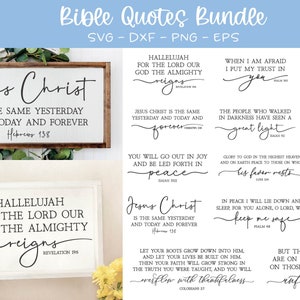 Bible Quotes Bundle
SVG - DXF - PNG - EPS
s Christ
E SAME YESTERDAY
TODAY AND FOREVER
Hebrews 13:8
HALLELUJAH
THE LORD OUR
THE ALMIGHTY
reigns
REVELATION 19:6
HALLELUJAH
FOR THE LORD OUR
GOD THE ALMIGHTY
reigns
REVELATION 19:6
WHEN I AM AFRAID
I PUT MY TRUST IN
you
JESUS CHRIST IS THE SAME
YESTERDAY AND TODAY AND
forever
THE PEOPLE WHO WALKED
IN DARKNESS HAVE SEEN A
great light
YOU WILL GO OUT IN JOY
AND BE LED FORTH IN
peace
GLORY TO GOD IN THE HIGHEST HEAVEN
AND ON EARTH PEACE TO THOSE ON WHOM
his favor rests
Jesus Christ
IS THE SAME YESTERDAY
AND TODAY AND FOREVER
Hebrews 13:8
IN PEACE I WILL LIE DOWN AND
SLEEP FOR YOU ALONE, O LORD, WILL
keep me safe
LET YOUR ROOTS GROW DOWN INTO HIM,
AND LET YOUR LIVES BE BUILT ON HIM.
THEN YOUR FAITH WILL GROW STRONG IN
THE TRUTH YOU WERE TAUGHT, AND YOU WILL
overflow with thankfulness
COLOSSIANS 2:7
BUT TH
ARE ON
ON THOS